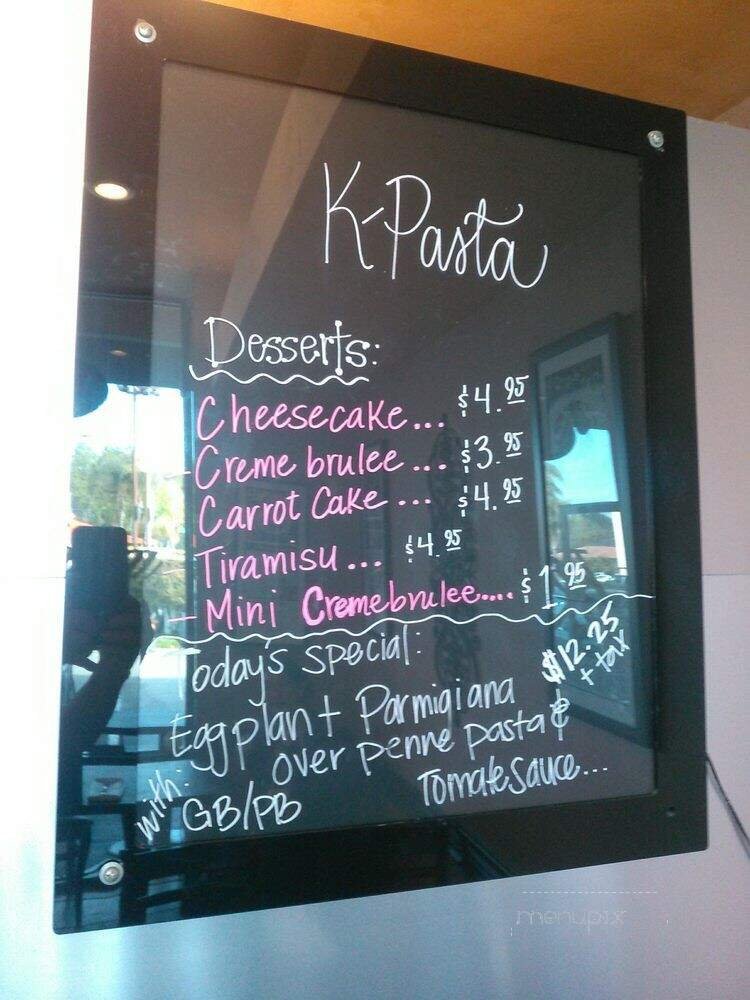 K-Pasta
Desserts:
Cheesecake... $4.95
- Creme brulee ... $3.95
Carrot Cake ... $4.95
Tiramisu... $4.95
- Mini Cremebrulee.... $1.95
Today's special: $12.25
+ tax
Eggplant Parmigiana
over penne pasta &
with: GB/PB Tomate Sauce...
menupix